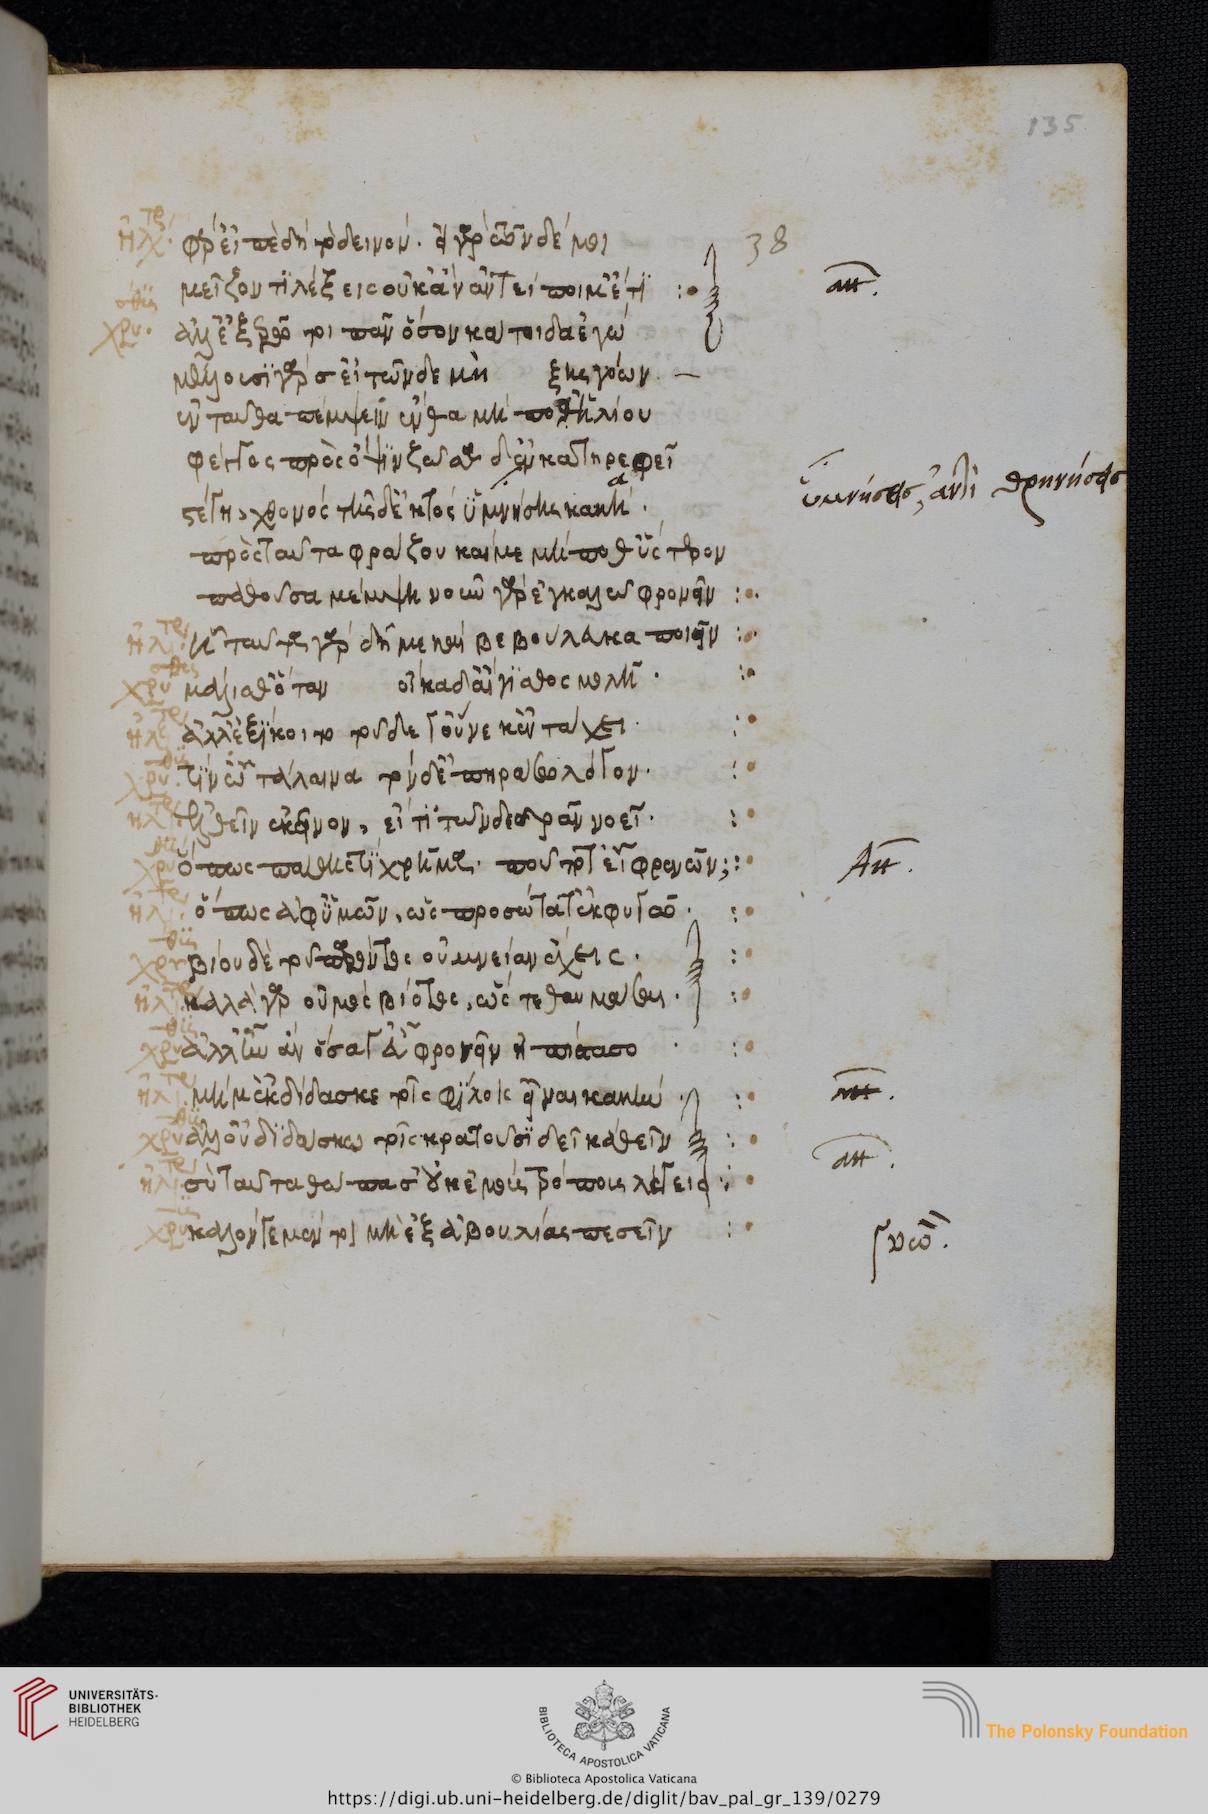 135
38
ἠλέκτρ. φέρ' εἰπὲ δὴ τὸ δεινόν. εἰ γὰρ τῶνδέ μοι
μεῖζον τὶ λέξεις οὐκ ἂν ἀντείποιμ' ἔτι :
χρυσόθεμις. ἀλλ' ἐξερῶ τοι πᾶν ὅσον κάτοιδα ἐγώ
μέλλουσι γάρ σ' εἰ τῶνδε μὴ ξῃς γόων.
ἐνταῦθα πέμψειν ἔνθα μή ποθ' ἡλίου
φέγγος πρὸς ὄψιν ζῶσα δ' ἐν κατηρεφεῖ
στέγῃ χθονὸς τῆσδ' ἐκτὸς ὑμνήσῃς κακή.
πρὸς ταῦτα φράζου καί με μή ποθ' ὕστερον
παθοῦσα μέμψῃ νῦν γὰρ ἐν καλῷ φρονεῖν :
ἠλέκτρ. ἦ ταῦτα γὰρ δή με καὶ βεβούλακα ποιεῖν :
χρυσόθεμις μάλισθ' ὅταν οἴκαδ' αἴγισθος μόλῃ. :
ἠλέκτρ. ἀλλ' ἐξίκοιτο τοῦδε γ' οὕνεκ' ἐν τάχει :
χρυσόθεμις. τίν' ὦ τάλαινα τόνδ' ἐπηράσω λόγον. :
ἠλέκτρ. ἐλθεῖν ἐκεῖνον, εἴ τι τῶνδε δρᾶν νοεῖ. :
χρυσόθεμις ὅπως πάθῃς τί χρῆμα. ποῦ ποτ' εἶ φρενῶν; :
ἠλέκτρ. ὅπως ἀφ' ὑμῶν, ὡς προσώτατ' ἐκφύγω. :
χρυσόθεμις βίου δὲ τοῦ παρόντος οὐ μνείαν ἔχεις. :
ἠλέκτρ. καλὸς γὰρ οὑμὸς βίοτος, ὥστε θαυμάσαι. :
χρυσόθεμις ἀλλ' ἦν ἂν φρονεῖν ἠπίστασο :
ἠλέκτρ. μή μ' ἐκδίδασκε τοῖς φίλοις εἶναι κακήν. :
χρυσόθεμις ἀλλ' οὐ διδάσκω τοῖς κρατοῦσι δ' εἰκαθεῖν :
ἠλέκτρ. σὺ ταῦτα οὐκ ἐμοὺς τρόπους λέγεις :
χρυσόθεμις καλόν γε μέντοι μὴ ἐξ ἀβουλίας πεσεῖν :
ὑμνήσεις, ἀντὶ θρηνήσεις
UNIVERSITÄTS-
BIBLIOTHEK
HEIDELBERG
BIBLIOTECA APOSTOLICA VATICANA
The Polonsky Foundation
© Biblioteca Apostolica Vaticana
https://digi.ub.uni-heidelberg.de/diglit/bav_pal_gr_139/0279